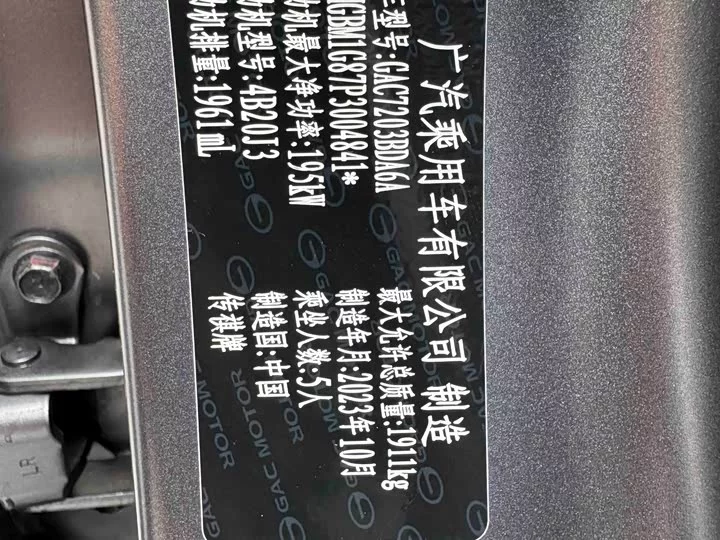 广汽乘用车有限公司 制造
车型号:GAC7203BDA6A 最大允许总质量:1911kg
GBM1G87P3004841* 制造年月:2023年10月
动机最大净功率:195kW 乘坐人数:5人
动机型号:4B20J3 制造国:中国
动机排量:1961mL 传祺牌
GAC MOTOR
LR